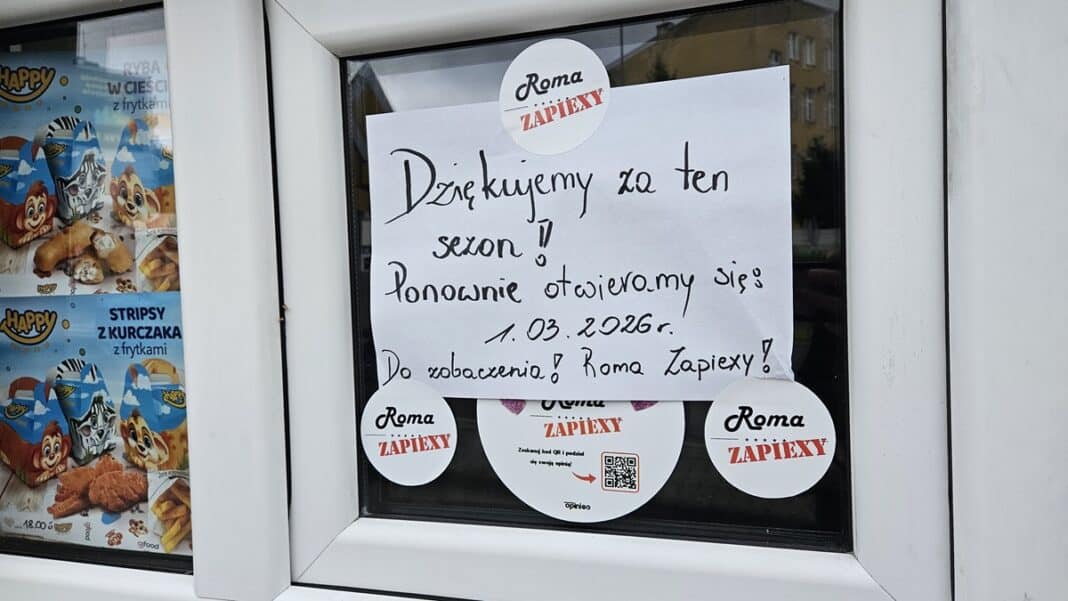 HAPPY
RYBA
W CIEŚCIE
z frytkami
HAPPY
STRIPSY
Z KURCZAKA
z frytkami
...18.00
Roma
ZAPIEXY
Dziękujemy za ten
sezon!
Ponownie otwieramy się:
1.03.2026r.
Do zobaczenia! Roma Zapiexy!
Roma
ZAPIEXY
Roma
ZAPIEXY
Zeskanuj kod QR i podziel
się swoją opinią!
opineo
Roma
ZAPIEXY